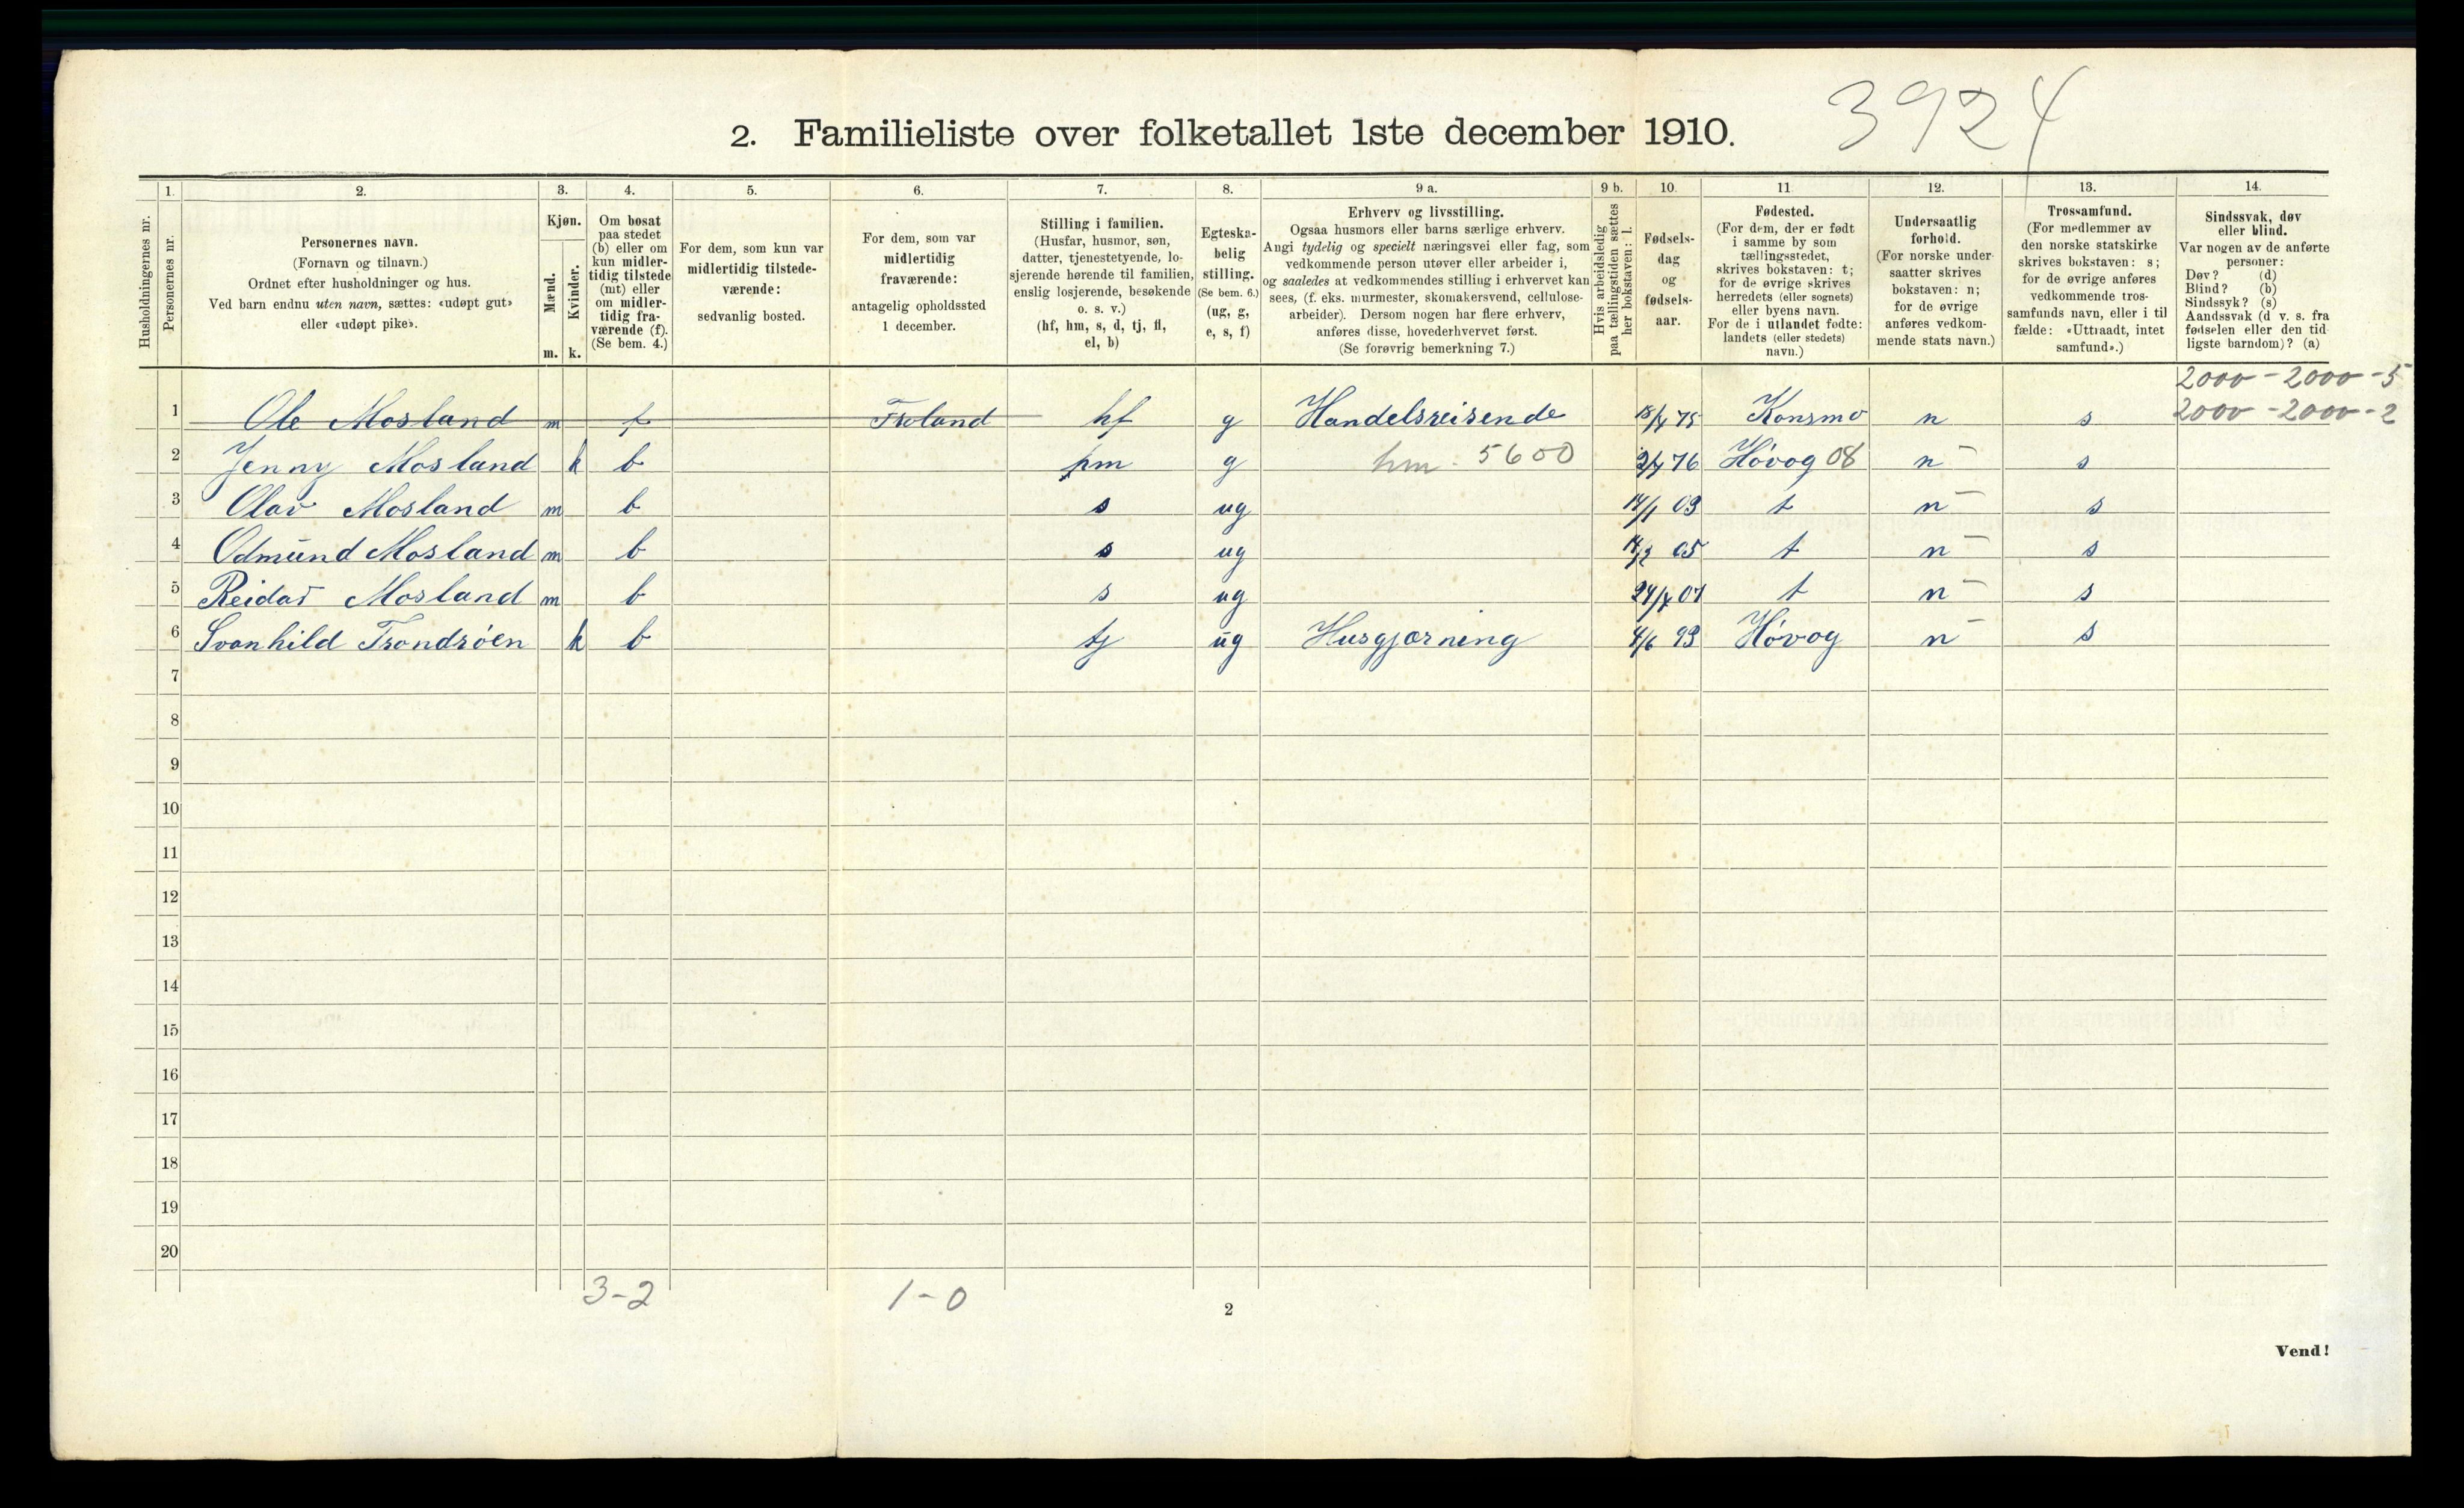 3924
2. Familieliste over folketallet 1ste december 1910.
Husholdningernes nr.
1.
Personernes nr.
2.
Personernes navn.
(Fornavn og tilnavn.)
Ordnet efter husholdninger og hus.
Ved barn endnu uten navn, sættes: «udøpt gut»
eller «udøpt pike».
3.
Kjøn.
Mænd.
Kvinder.
m. k.
4.
Om bosat
paa stedet
(b) eller om
kun midler-
tidig tilstede
(mt) eller
om midler-
tidig fra-
værende (f).
(Se bem. 4.)
5.
For dem, som kun var
midlertidig tilstede-
værende:
sedvanlig bosted.
6.
For dem, som var
midlertidig
fraværende:
antagelig opholdssted
1 december.
7.
Stilling i familien.
(Husfar, husmor, søn,
datter, tjenestetyende, lo-
sjerende hørende til familien,
enslig losjerende, besøkende
o. s. v.)
(hf, hm, s, d, tj, fl,
el, b)
8.
Egteska-
belig
stilling.
(Se bem. 6.)
(ug, g,
e, s, f)
9 a.
Erhverv og livsstilling.
Ogsaa husmors eller barns særlige erhverv.
Angi tydelig og specielt næringsvei eller fag, som
vedkommende person utøver eller arbeider i,
og saaledes at vedkommendes stilling i erhvervet kan
sees, (f. eks. murmester, skomakersvend, cellulose-
arbeider). Dersom nogen har flere erhverv,
anføres disse, hovederhvervet først.
(Se forøvrig bemerkning 7.)
9 b.
Hvis arbeidsledig
paa tællingstiden sættes
her bokstaven: l.
10.
Fødsels-
dag
og
fødsels-
aar.
11.
Fødested.
(For dem, der er født
i samme by som
tællingsstedet,
skrives bokstaven: t;
for de øvrige skrives
herredets (eller sognets)
eller byens navn.
For de i utlandet fødte:
landets (eller stedets)
navn.)
12.
Undersaatlig
forhold.
(For norske under-
saatter skrives
bokstaven: n;
for de øvrige
anføres vedkom-
mende stats navn.)
13.
Trossamfund.
(For medlemmer av
den norske statskirke
skrives bokstaven: s;
for de øvrige anføres
vedkommende tros-
samfunds navn, eller i til-
fælde: «Uttraadt, intet
samfund».)
14.
Sindssvak, døv
eller blind.
Var nogen av de anførte
personer:
Døv? (d)
Blind? (b)
Sindssyk? (s)
Aandssvak (d. v. s. fra
fødselen eller den tid-
ligste barndom)? (a)
2000 - 2000 - 5
1 Ole Mosland m f Froland hf g Handelsreisende 75 Konsmo n s 2000 - 2000 - 2
2 Jenny Mosland k b hm g hm. 5600 76 Høvog 08 n s
3 Olav Mosland m b s ug 14/1 03 t n s
4 Odmund Mosland m b s ug 05 t n s
5 Reidar Mosland m b s ug 07 t n s
6 Svanhild Trondrøen k b tj ug Husgjørning 4/6 93 Høvog n s
7
8
9
10
11
12
13
14
15
16
17
18
19
20
3-2 1-0
2
Vend!